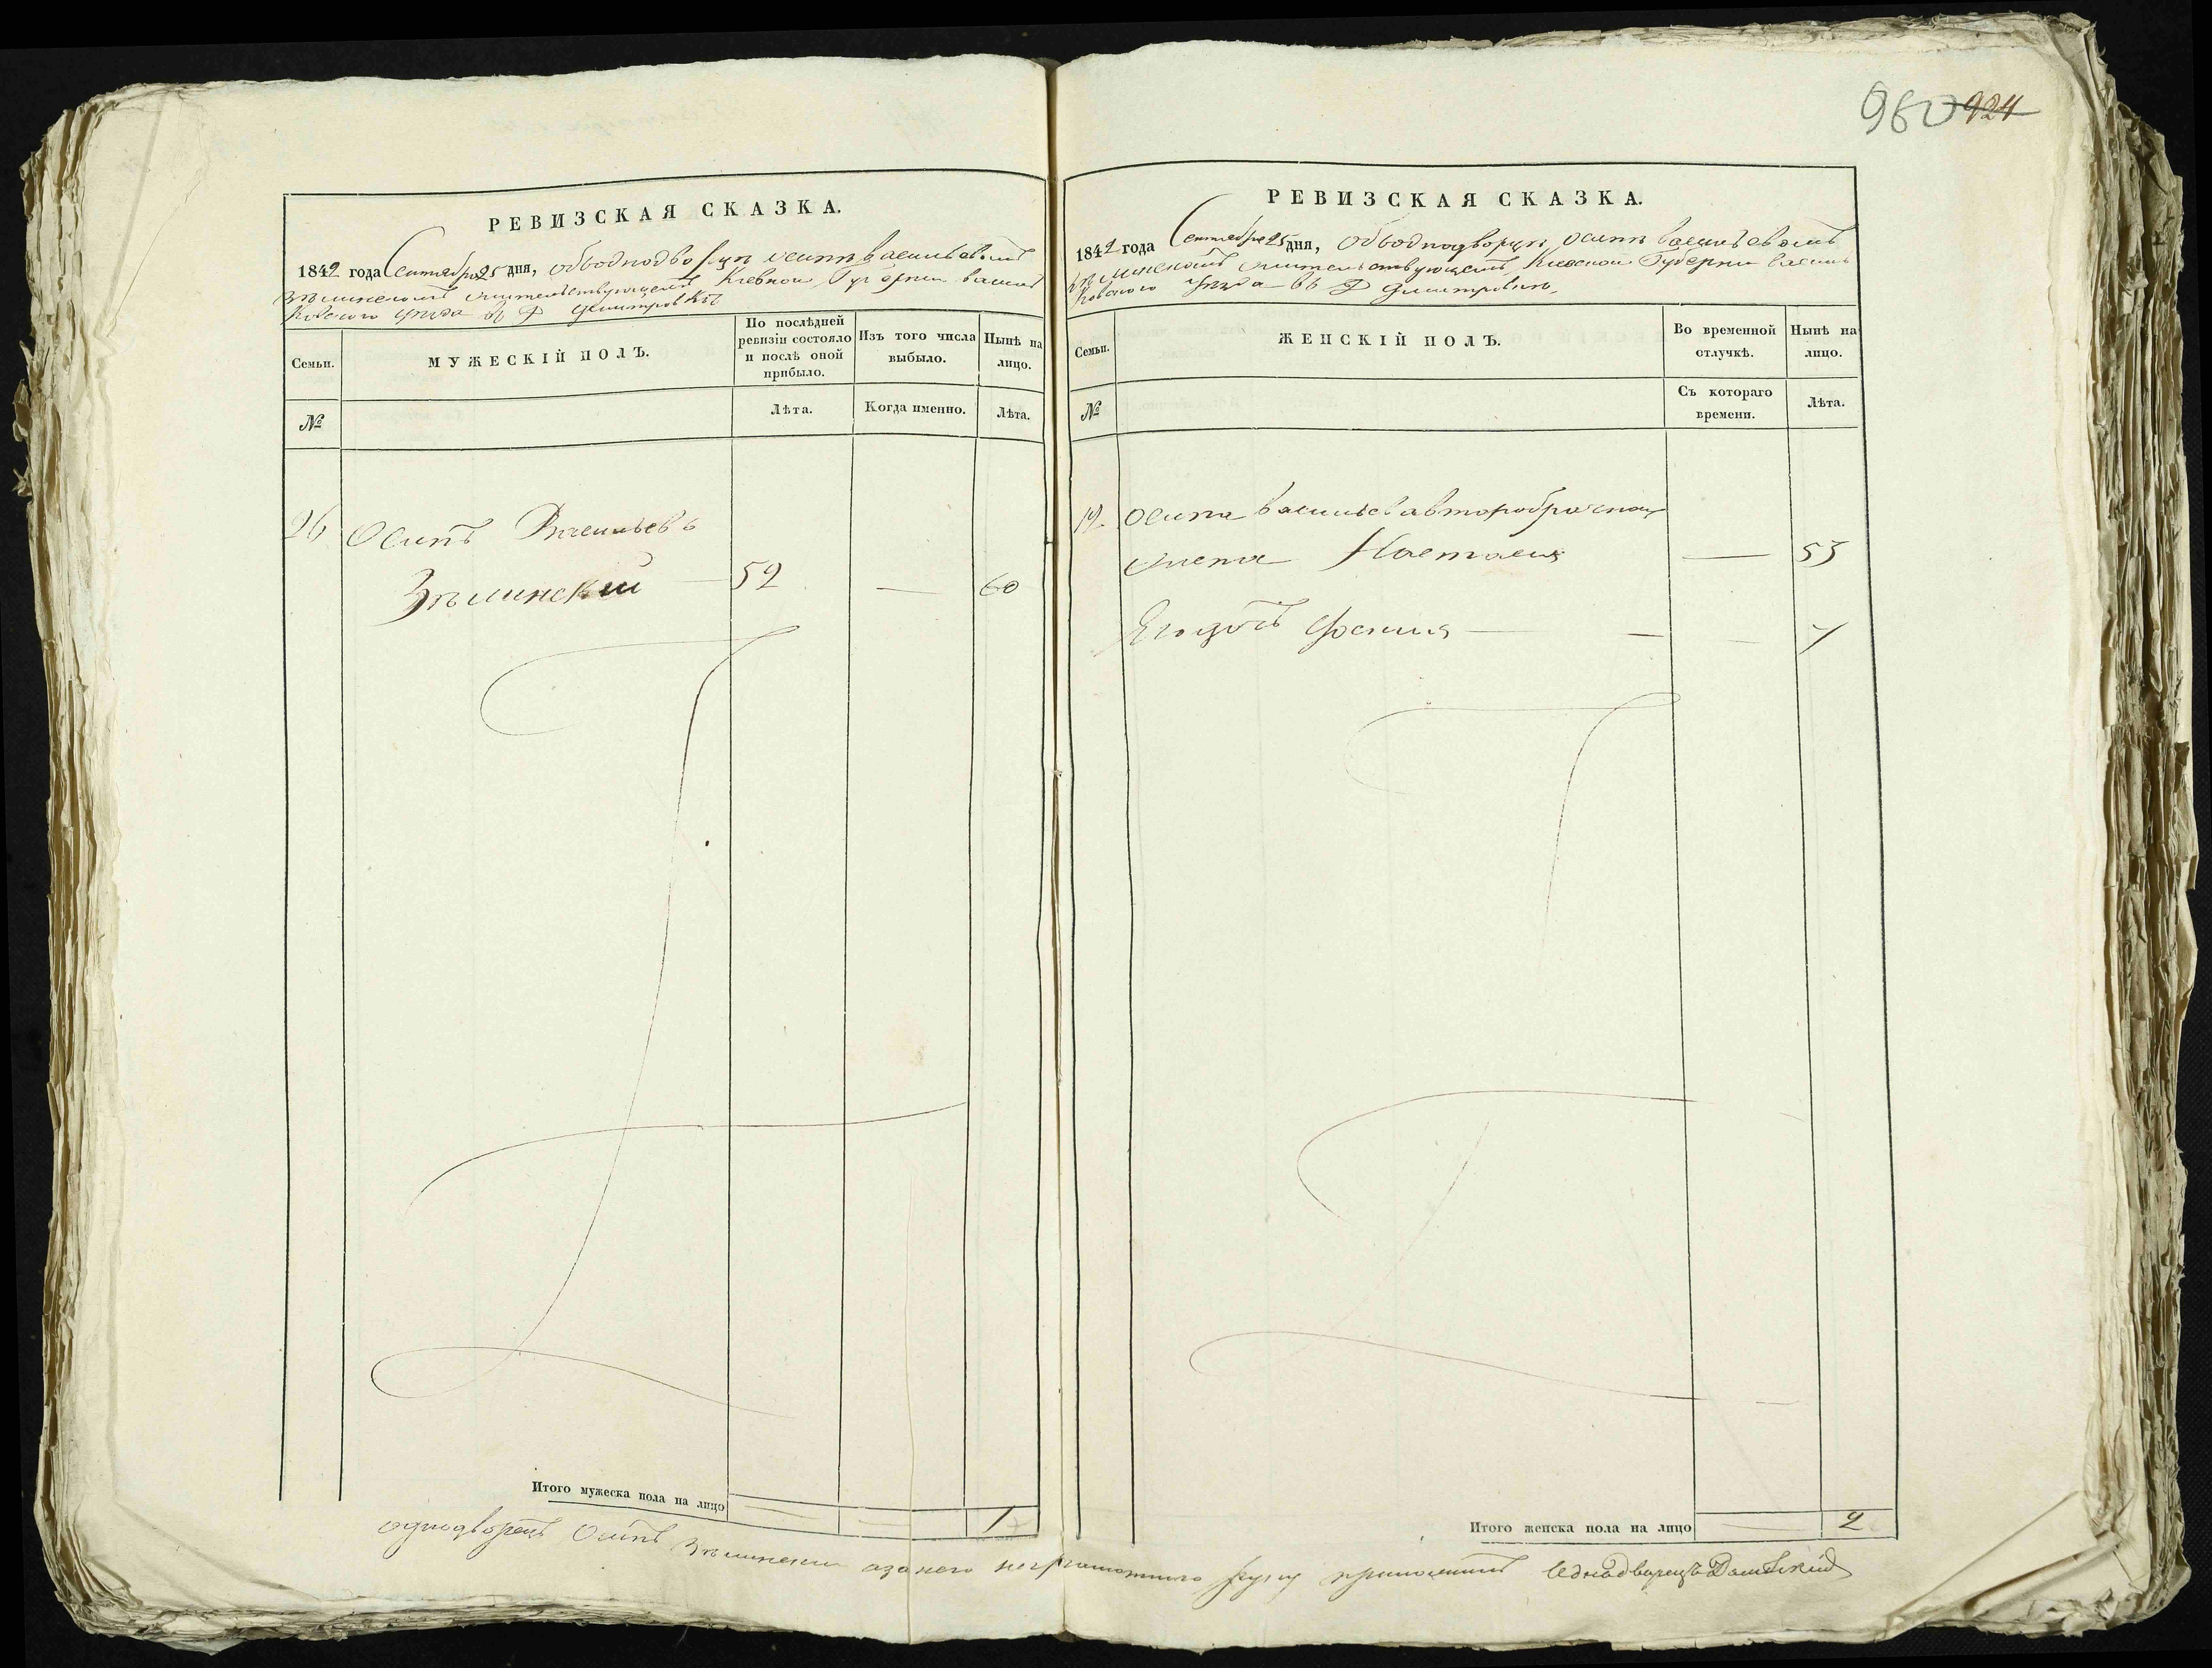 960 924
РЕВИЗСКАЯ СКАЗКА.
1842 года Сентября 25 дня, объ однодворцѣ осипѣ васильевомъ
Зѣлинскомъ жительствующемъ Киевской Губернии василь
ковского уѣзда въ Д Димитровкѣ
Семьи.
МУЖЕСКІЙ ПОЛЪ.
По послѣдней
ревизіи состояло
и послѣ оной
прибыло.
Изъ того числа
выбыло.
Нынѣ на
лицо.
№
Лѣта.
Когда именно.
Лѣта.
26 Осипъ Васильевъ
Зѣлинский — 52 — 60
Итого мужеска пола на лицо — — 1
РЕВИЗСКАЯ СКАЗКА.
1842 года Сентября 25 дня, объ однодворцѣ осипѣ васильевомъ
Зѣлинскомъ жительствующемъ Киевской Губернии василь
ковского уѣзда въ Д Димитровкѣ
Семьи.
ЖЕНСКІЙ ПОЛЪ.
Во временной
отлучкѣ.
Нынѣ на
лицо.
№
Съ котораго
времени.
Лѣта.
Осипа васильева второбрачная
жена Настасия — 55
Его дочь — — —
Итого женска пола на лицо — 2
однодворецъ Осипъ Зѣлинский а за него неграмотного руку приложилъ